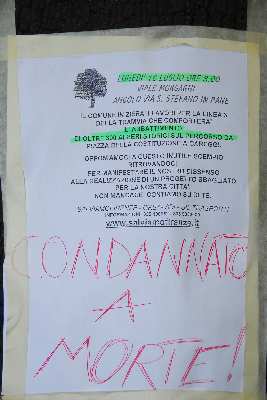 LUNEDI' 10 LUGLIO ORE 9.00
VIALE MORGAGNI
ANGOLO VIA S. STEFANO IN PANE
IL COMUNE INIZIERA' I LAVORI PER LA LINEA
DELLA TRAMVIA CHE COMPORTERA'
L'ABBATTIMENTO
DI OLTRE 300 ALBERI STORICI SUL PERCORSO DA
PIAZZA DELLA COSTITUZIONE A CAREGGI.
OPPONIAMOCI A QUESTO INUTILE SCEMPIO
RITROVANDOCI
PER MANIFESTARE IL NOSTRO DISSENSO
ALLA REALIZZAZIONE DI UN PROGETTO SBAGLIATO
PER LA NOSTRA CITTA'
NON MANCATE, CONTIAMO SU DI TE.
www.salviamofirenze.it
CONDANNATO
A
MORTE!